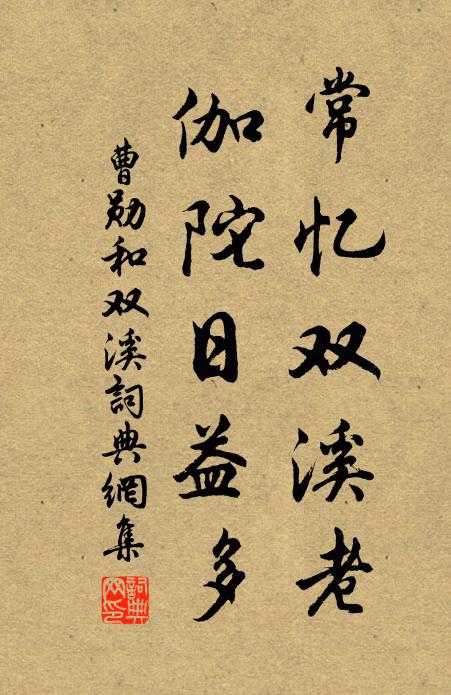 常忆双溪老
伽陀日益多
曹勋和双溪詞典網集
詞典網印